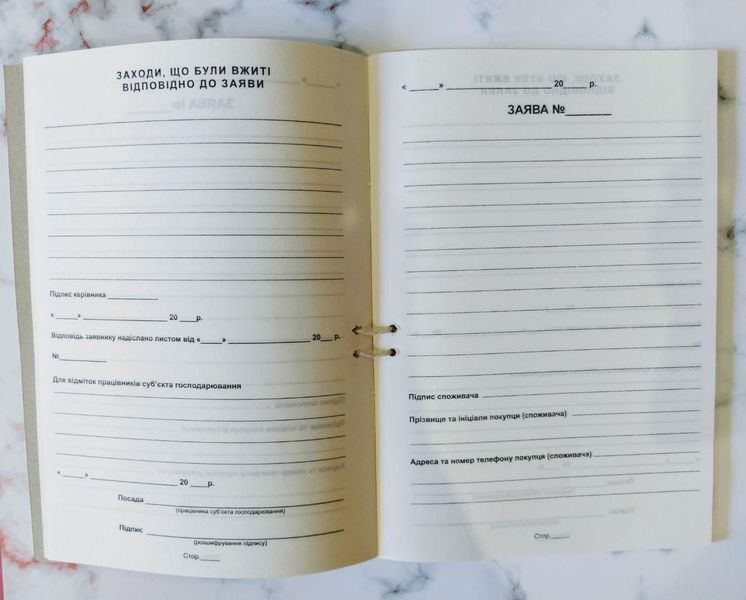 ЗАХОДИ, ЩО БУЛИ ВЖИТІ
ВІДПОВІДНО ДО ЗАЯВИ
Підпис керівника ____________
« _____» ____________________ 20 ____р.
Відповідь заявнику надіслано листом від «____» ____________________ 20___ р.
№___________
Для відміток працівників суб'єкта господарювання
« _____» ____________________ 20 ____р.
Посада ____________________
(працівника суб'єкта господарювання)
Підпис ____________________
(розшифрування підпису)
Стор._____
« _____» ____________________ 20____ р.
ЗАЯВА №______
Підпис споживача ____________________
Прізвище та ініціали покупця (споживача) ____________________
Адреса та номер телефону покупця (споживача) ____________________
Стор._____